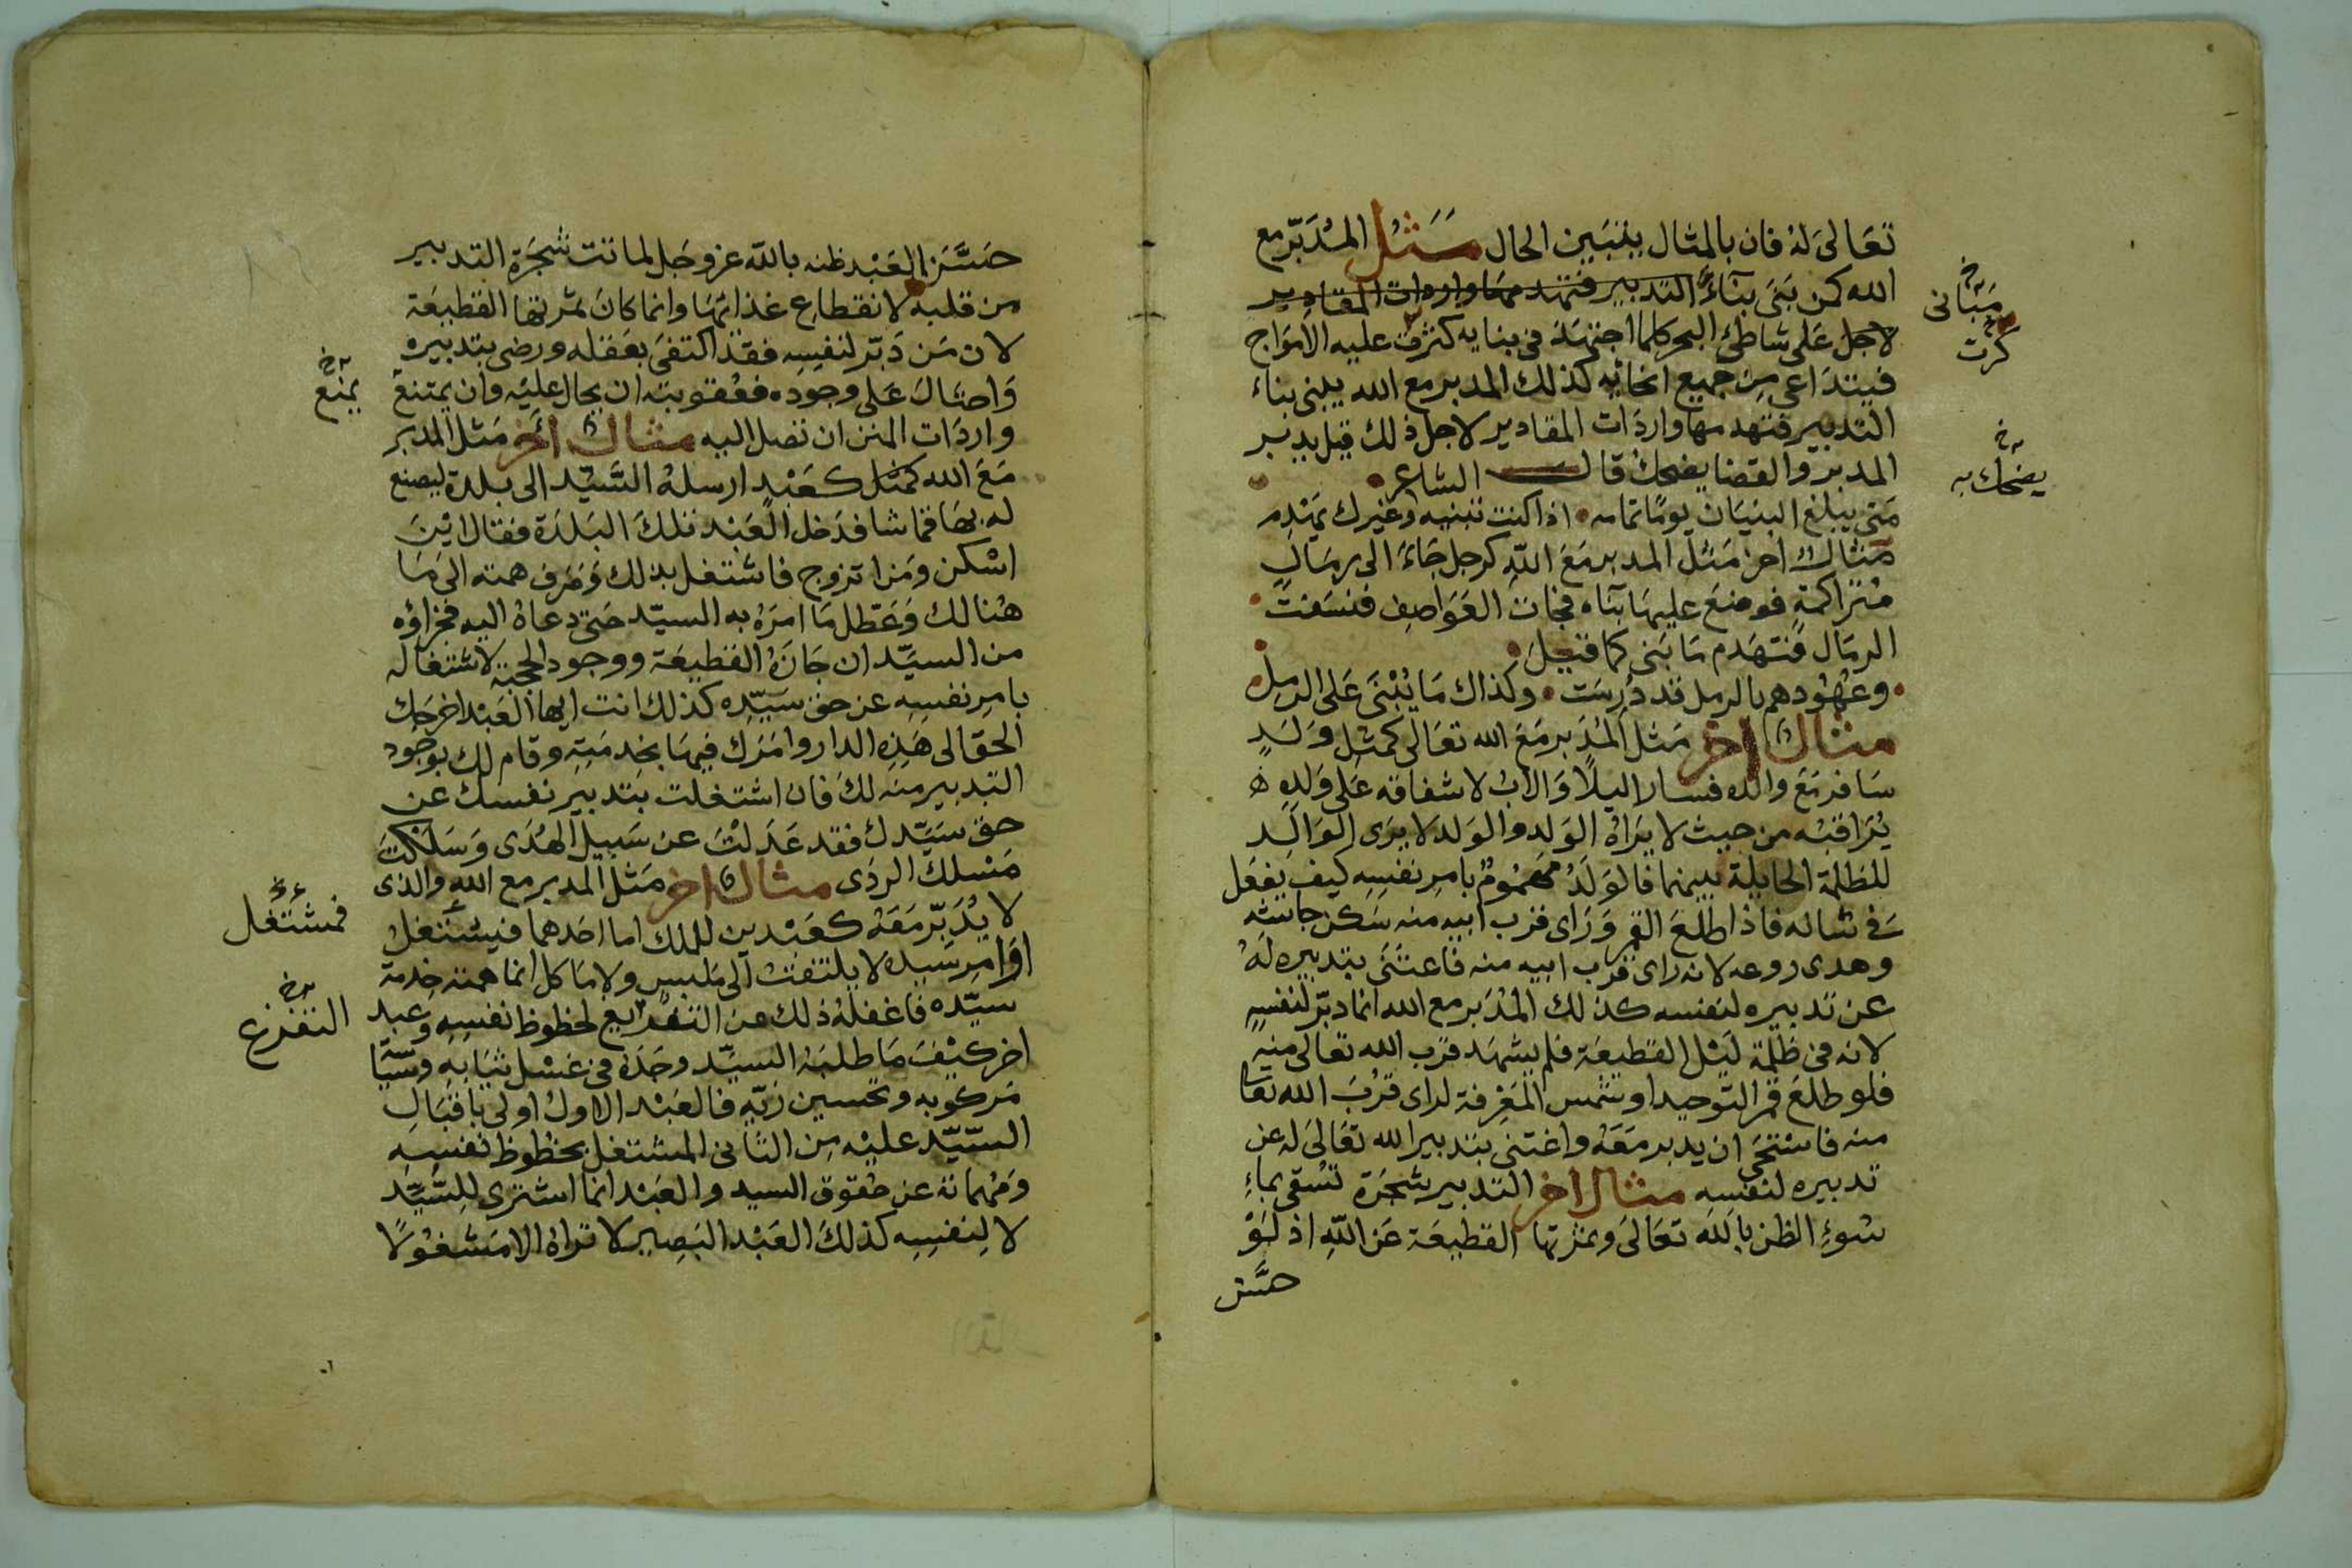 تعَالىَ لهُ فان بالمثال يتبَين الحال مَثَلُ المُدَبّر مع
الله كمن بَنىَ بنَآءً التدبير فتهدمهَا واردات المقادير
لاجل عَلى شاطئ البحر كلما اجتهَدَ فى بنايه كثرت عليه الأموَاج
فيتدَاعى مِن جميع انحائه كذلك المدبر مع الله يبنى بناءَ
التدبير فتهدمها واردَات المقادير لاجل ذلك قيل يدبر
المدبر والقضا يضحك قال الشاعر
مَتى يبلغ البنيَان يومًا تمامه اذا كنت تبنيه وغيرك يَهْدِم
مثال اخر مَثَل المدبر مَعَ اللّهِ كرجل جَاءَ الى رمَالٍ
مُتَراكمةٍ فوضَعَ عليهَا بنآه فجَات العَوَاصِف فنسَفَتْ
الرمَال فتهَدم مَا بَنى كما قيلَ
وعُهُودهم بالرمل قد دُرِسَت وكذاك مَا يُبْنىَ عَلى الرمِل
مثال اخر مَثل المُدَبر مَعَ الله تعَالى كمثل وَلَدٍ
سَافر مَعَ والده فسارا ليلًا وَالابُ لاشفاقه عَلى وَلدِه
يُرَاقبُه من حيث لا يَرَاهُ الوَلد والوَلد لا يرَى الوَالِد
للظلمَة الحايلة بينهما فالوَلَدُ مَهمُومٌ بامرِ نفسِه كيف يَفعَل
فى شانه فاذا طلعَ القمر وَرَاى قرب ابيه منه سَكن جاشه
وهدى روعه لانه راى قرب ابيه منه فاعتَنَى بتدبيره لَهُ
عن تدبيره لنفسه كذلك المُدَبر مع الله انما دبّر لنفسِهِ
لانه فى ظلمة لَيْل القطيعَة فلم يشهَد قرب الله تعالى منه
فلو طلعَ قمر التَوحيد او شمس المَعرِفة لراى قرْبَ الله تعا
منه فاسْتَحَى ان يدبر مَعَهُ واغتنى بتدبير الله تعَالىَ له عن
تدبيره لنفسه مثال اخر التدبير شجَرَة تسْقى بماءِ
سُوءِ الظن باللّه تعَالىَ وثمرتها القطيعَة عَن اللّهِ اذ لَوْ
حسَّن
مَبَانى خ
كرت
يضحك به خ
حَسَّنَ العَبْد ظنه باللّه عز وجَل لماتت شجَرَة التدبير
من قلبه لانقطاعِ غذائهَا وانما كانَ ثمرتها القطيعَة
لان مَن دَبّر لنفسِه فقد اكتفىَ بعَقله ورضى بتدبيره
وَاحتَالَ عَلى وجوده فعقوبته ان يحال عليَه وان يمتنعَ
واردَات المنن ان تصل اليه مثال اخر مَثل المدبر
مَعَ الله كمثل كعَبْدٍ ارسلهُ السَّيّد الى بلدة ليصنع
له بهَا قماشا فدَخل العَبْد تلكَ البَلدَة فقال اين
اسْكن ومَن اتزوج فاشتغل بذلك وَصَرف همته الى مَا
هُنالك وَعَطّل مَا امرَهُ به السيّد حَتى دعاهُ اليه فجزاؤه
من السيَّد ان جَازَهُ القطيعَة ووجود الحجبَة لاشتغاله
بامرِ نفسِه عن حق سَيّده كذلك انت ايها العَبْد اخرجَك
الحق الى هَذِه الدار وامَرَك فيهَا بخدمَتِهِ وقام لك بوجُود
التدبير منه لكَ فان اشتغلت بتدبير نفسك عن
حق سَيَّدك فقد عَدَلْتَ عن سَبيل الهُدَى وَسَلكتَ
مَسْلك الردَى مثال اخر مَثل المدبر مع الله والذى
لا يُدَبّر مَعَهُ كعَبْدين للملك اما احدهما فيشتغلُ
اوَامِر سَيده لا يلتفتُ الى مَلبسٍ ولا مَاكل انما همته خِدمة
سيّده فاغفلهُ ذلك عن التفريع لحظوظ نفسِهِ وعبد
اخر كيْفَ مَا طلبَهُ السيَّد وجَدَهُ فى غسْل ثيَابِهِ وَسيَّا
مَركوبه وتحسين زيّه فالعَبْد الاول اولى باقبَالِ
السّيّد عليْه مِن الثانى المشتغل بحظوظ نفسِه
وَمُهماته عن حقوق السيد والعَبْد انما اشترى للِسَّيّد
لا لِنَفسِه كذلكَ العَبْد البَصِير لا تراهُ الا مَشغُولًا
يمنع خ
فمشتغل
التفرغ خ